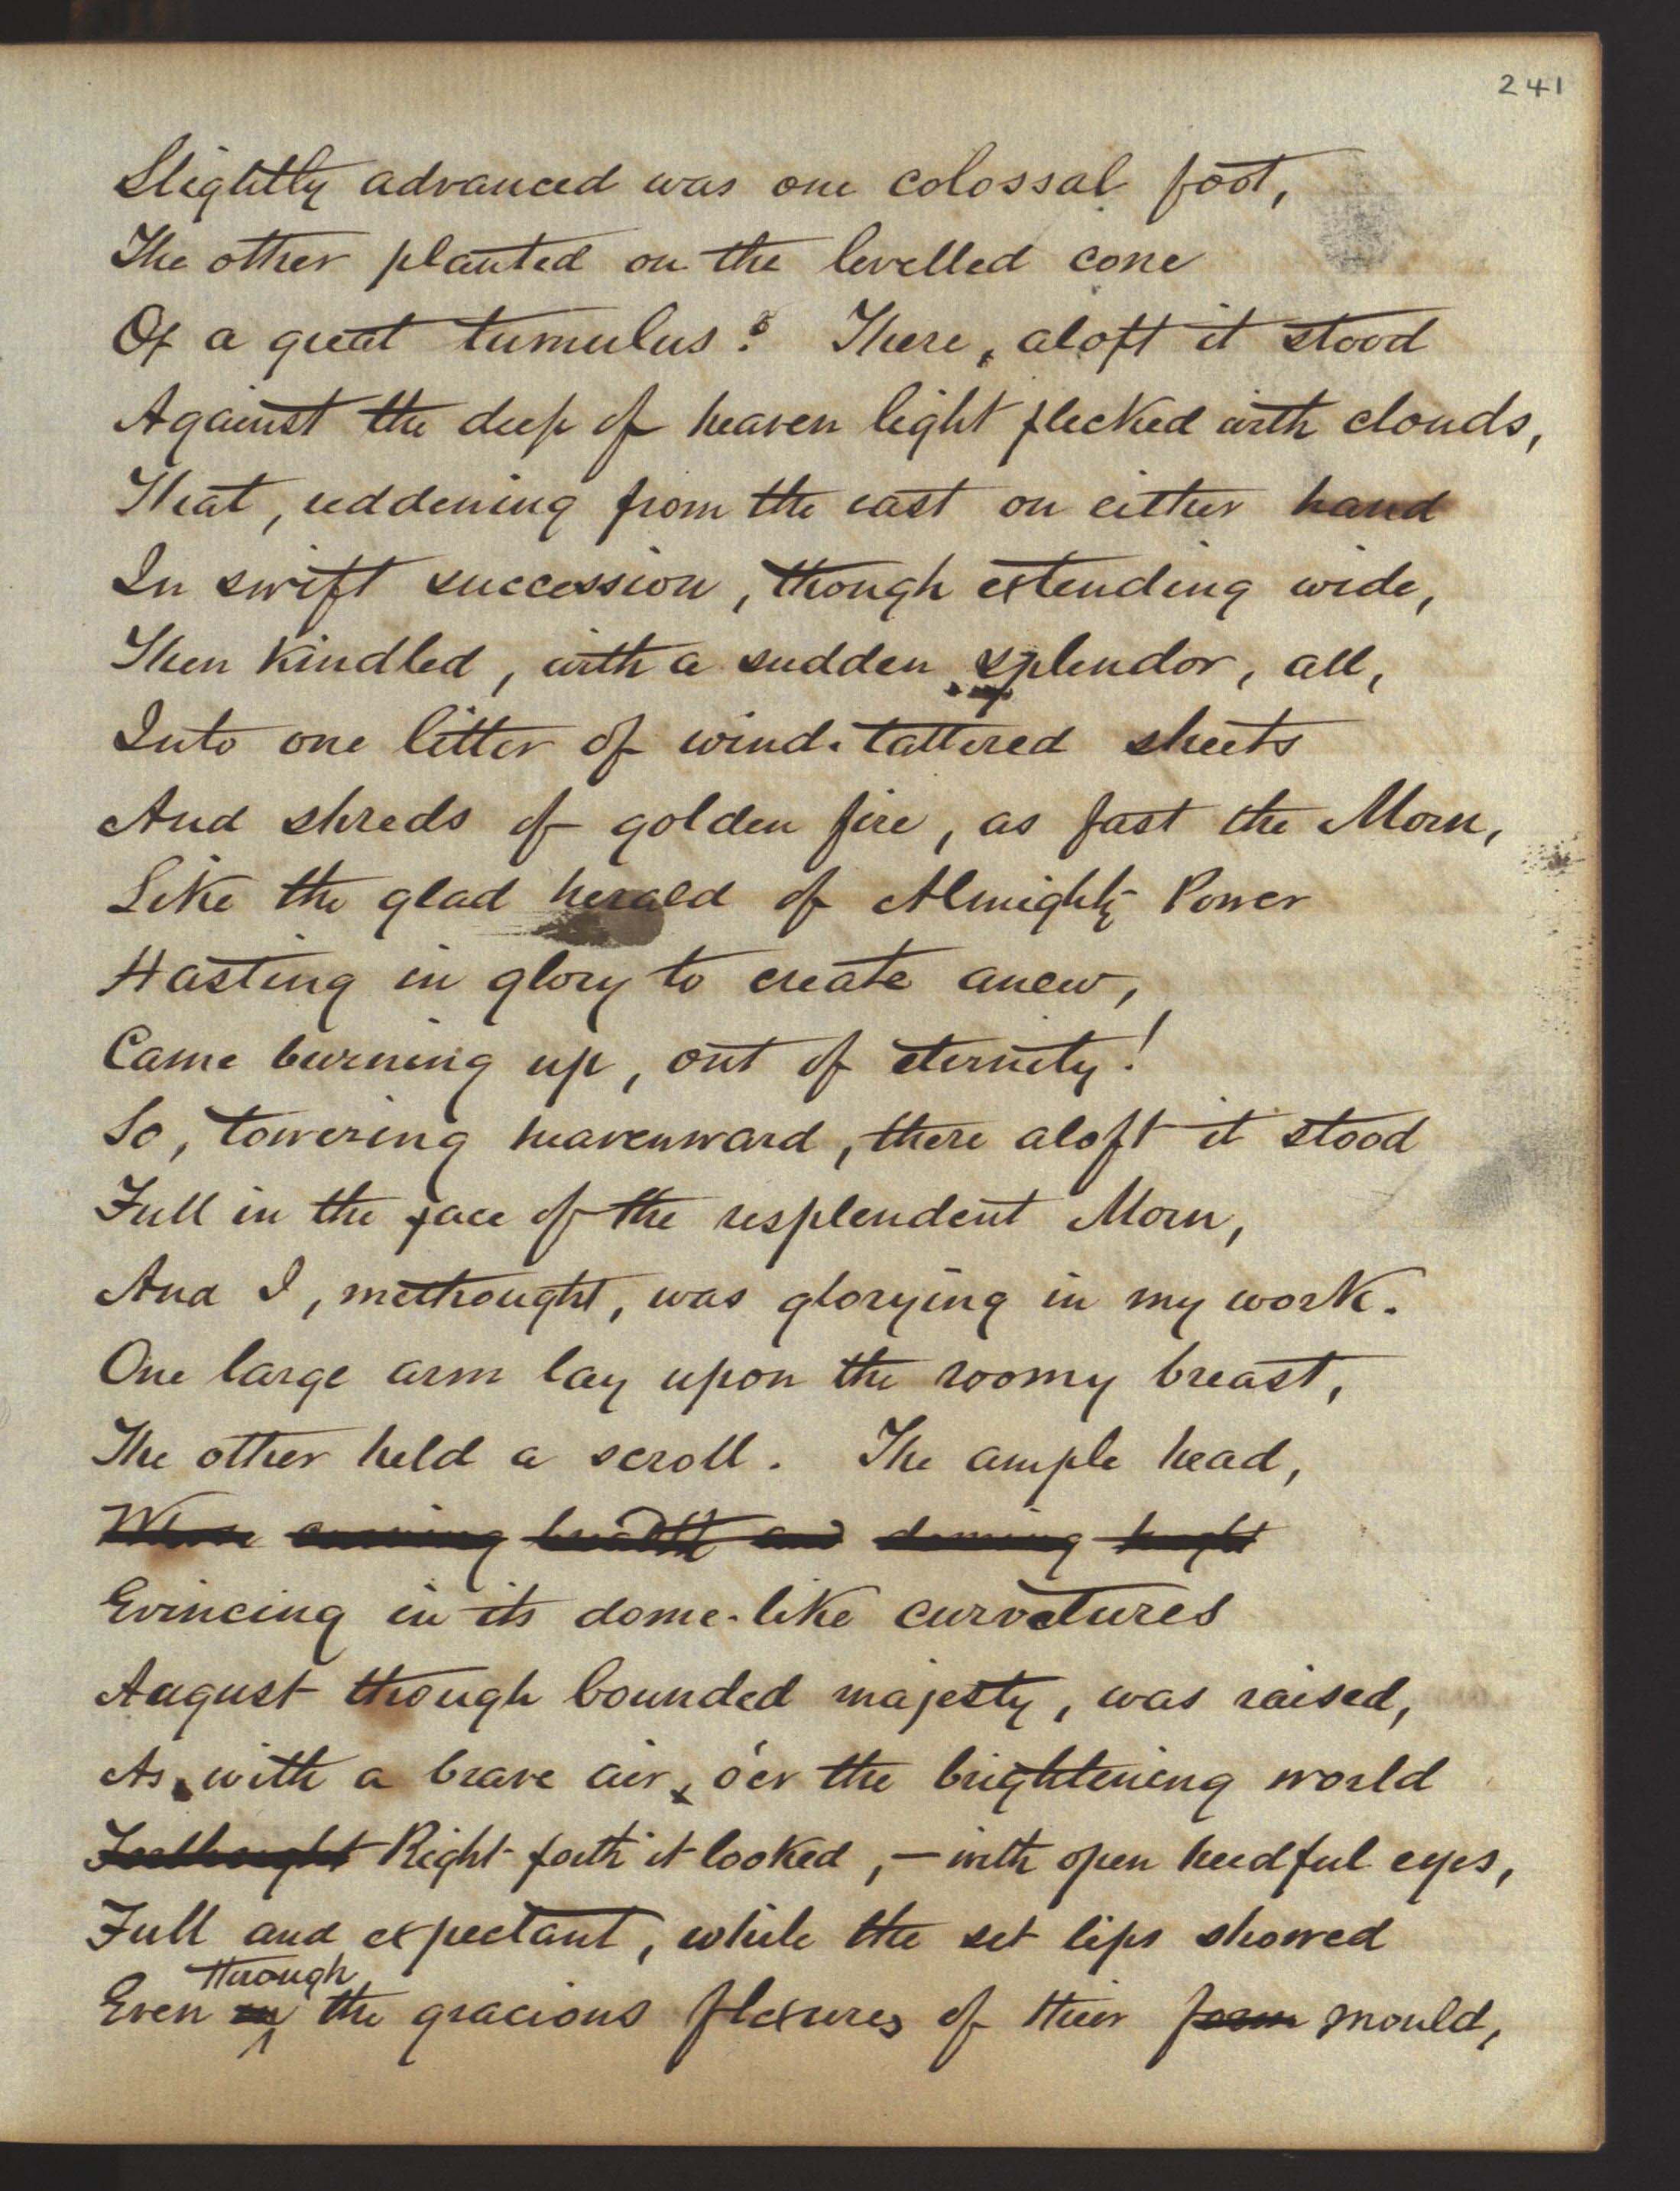 241
Slightly advanced was one colossal foot,
The other planted on the levelled cone
Of a great tumulus: There, aloft it stood
Against the deep of heaven light flecked with clouds,
That, reddening from the east on either hand
In swift succession, though extending wide,
Then kindled, with a sudden splendor, all,
Into one litter of wind-tattered sheets
And shreds of golden fire, as fast the Morn,
Like the glad herald of Almighty Power
Hasting in glory to create anew,
Came burning up, out of eternity!
So, towering heavenward, there aloft it stood
Full in the face of the resplendent Morn,
And I, methought, was glorying in my work.
One large arm lay upon the roomy breast,
The other held a scroll. The ample head,
Whose curving breadth and doming height
Evincing in its dome-like curvatures
August though bounded majesty, was raised,
As with a brave air, o'er the brightening world
Right forth it looked, — with open heedful eyes,
Full and expectant, while the set lips showed
through
Even in the gracious flexures of their form mould,